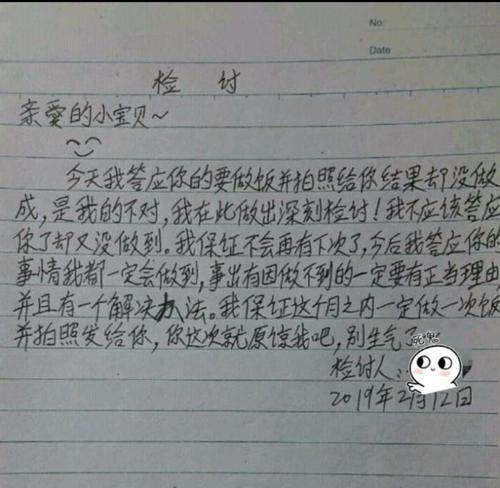 No:
Date
检 讨
亲愛的小宝贝~
今天我答应你的要做饭并拍照给你结果却没做
成,是我的不对,我在此做出深刻检讨!我不应该答应
你了却又没做到。我保证不会再有下次了,今后我答应你的
事情我都一定会做到,事出有因做不到的一定要有正当理由
并且有一个解决办法。我保证这个月之内一定做一次饭
并拍照发给你,你这次就原谅我吧,别生气了
死鬼
检讨人:
2019年2月12日